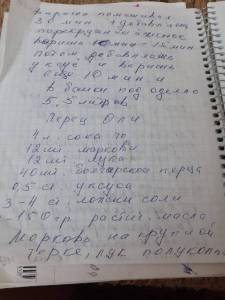 варить помешивая
30 мин
перекрутить чеснок
варить 10 мин - 15 мин
потом добавляем
уксус и варим
ещё 10 мин и
в банки под одеяло
5,5 литров
Перец Оли
4 л. сока то
12 шт моркови
12 шт лука
40 шт. болгарского перца
0,5 ст. уксуса
3-4 ст. ложки соли
-150 гр растит. масла
Морковь на крупной
терке, лук полуколь